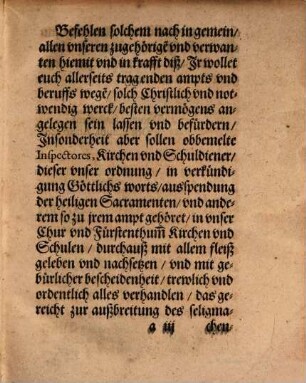 Befehlen solchem nach in gemein/
allen vnseren zugehörigē vnd verwan
ten hiemit vnd in krafft diß/ Jr wollet
euch allerseits tragenden ampts vnd
beruffs wegē/ solch Christlich vnd not
wendig werck/ besten vermögens an
gelegen sein lassen vnd befürdern/
Jnsonderheit aber sollen obbemelte
Inspectores, Kirchen vnd Schuldiener/
dieser vnser ordnung/ in verkündi
gung Göttlichs worts/ auspendung
der heiligen Sacramenten/ vnd ande
rem so zu jrem ampt gehöret/ in vnser
Chur vnd Fürstenthum̃ Kirchen vnd
Schulen/ durchauß mit allem fleiß
geleben vnd nachsetzen/ vnd mit ge
bürlicher bescheidenheit/ trewlich vnd
ordentlich alles verhandlen/ das ge
reicht zur außbreitung des seligma
a iij chen-